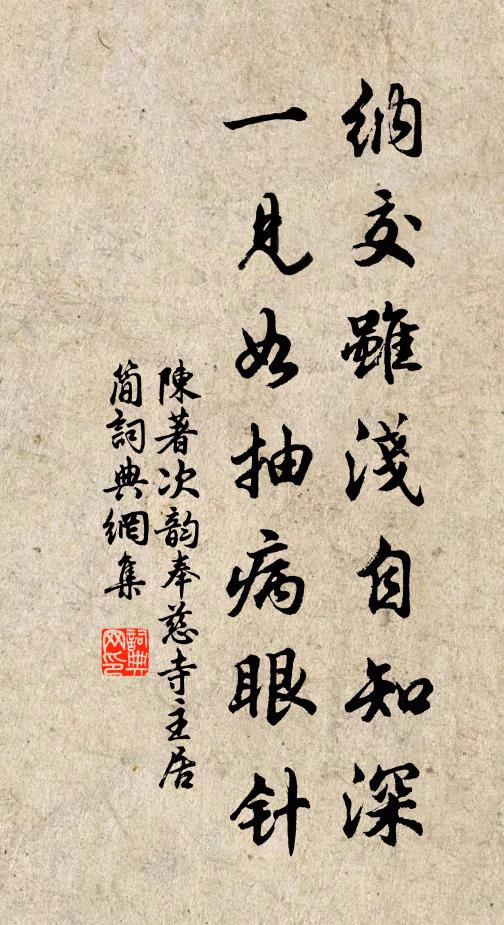 納交雖淺自知深
一見如抽病眼针
陳著次韵奉慈寺主居
簡詞典網集
詞典网印